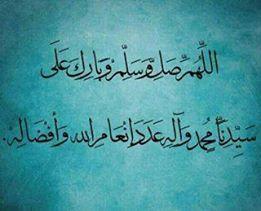 اللَّهُمَّ صَلِّ وَسَلِّمْ وَبَارِكْ عَلَى
سَيِّدِنَا مُحَمَّدٍ وَآلِهِ عَدَدَ إِنْعَامِ اللهِ وَأَفْضَالِهِ.